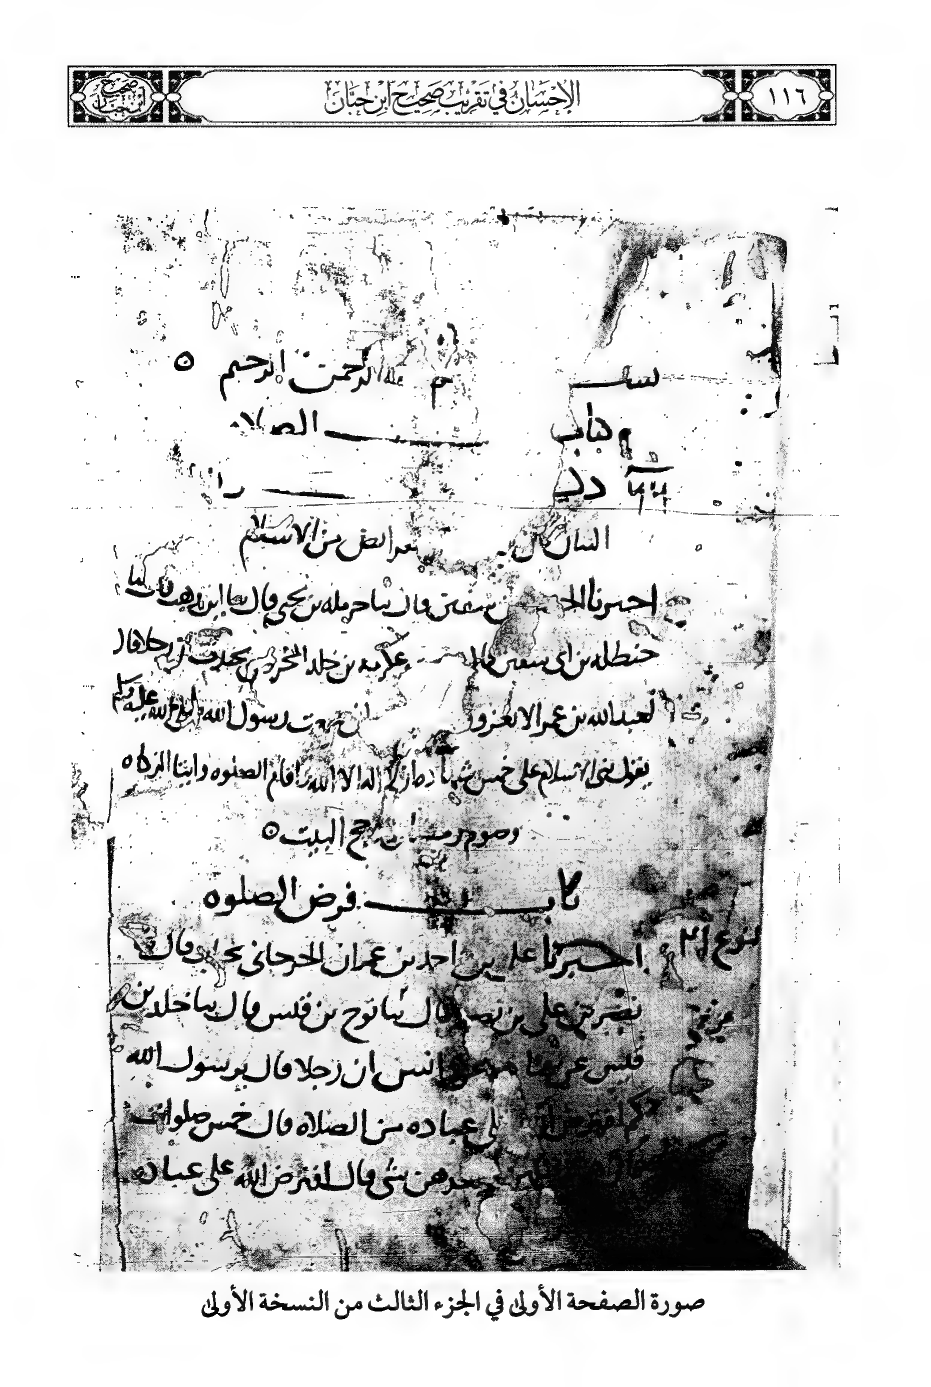 ١١٦
الإحسان في تقريب صحيح ابن حبان
صحيح ابن حبان
بسم الله الرحمن الرحيم
كتاب الصلاة
البيان بأن الفرائض من الاسلام
اخبرنا الحسن بن سفين قال حرمله بن يحيى قال ابن وهب قال
حنظله بن ابى سفين قال عكرمه بن خلد المخزومى يحدث ان رجلا قال
لعبد الله بن عمر الا تغزو سمعت رسول الله صلى الله عليه وسلم
يقول بنى الاسلام على خمس شهادة ان لا اله الا الله واقام الصلوه وايتا الزكاه
وصوم رمضان وحج البيت
باب فرض الصلوه
اخبرنا على بن احمد بن عمران الجرجانى قال
نصر بن على بن نصر قال ثنا نوح بن قيس قال ثنا خلد بن
قيس عن انس ان رجلا قال يرسول الله
كم افترض على عباده من الصلاه قال خمس صلوات
بعدهن شى قال افترض الله على عباده
نوع
صورة الصفحة الأولى في الجزء الثالث من النسخة الأولى